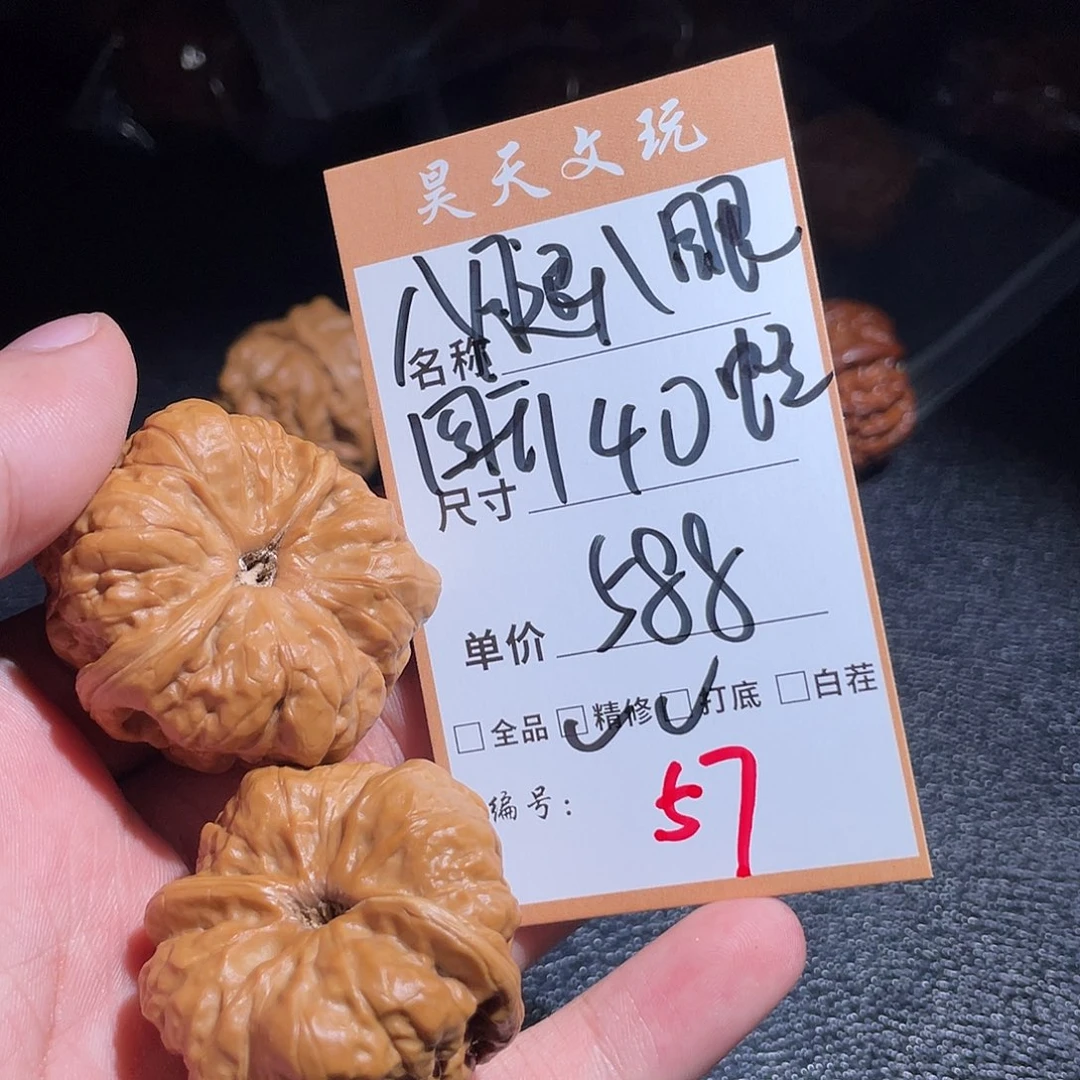 昊天文玩
八腿八眼
名称
40
尺寸
单价 588
□全品 □精修 □打底 □白茬
编号: 57